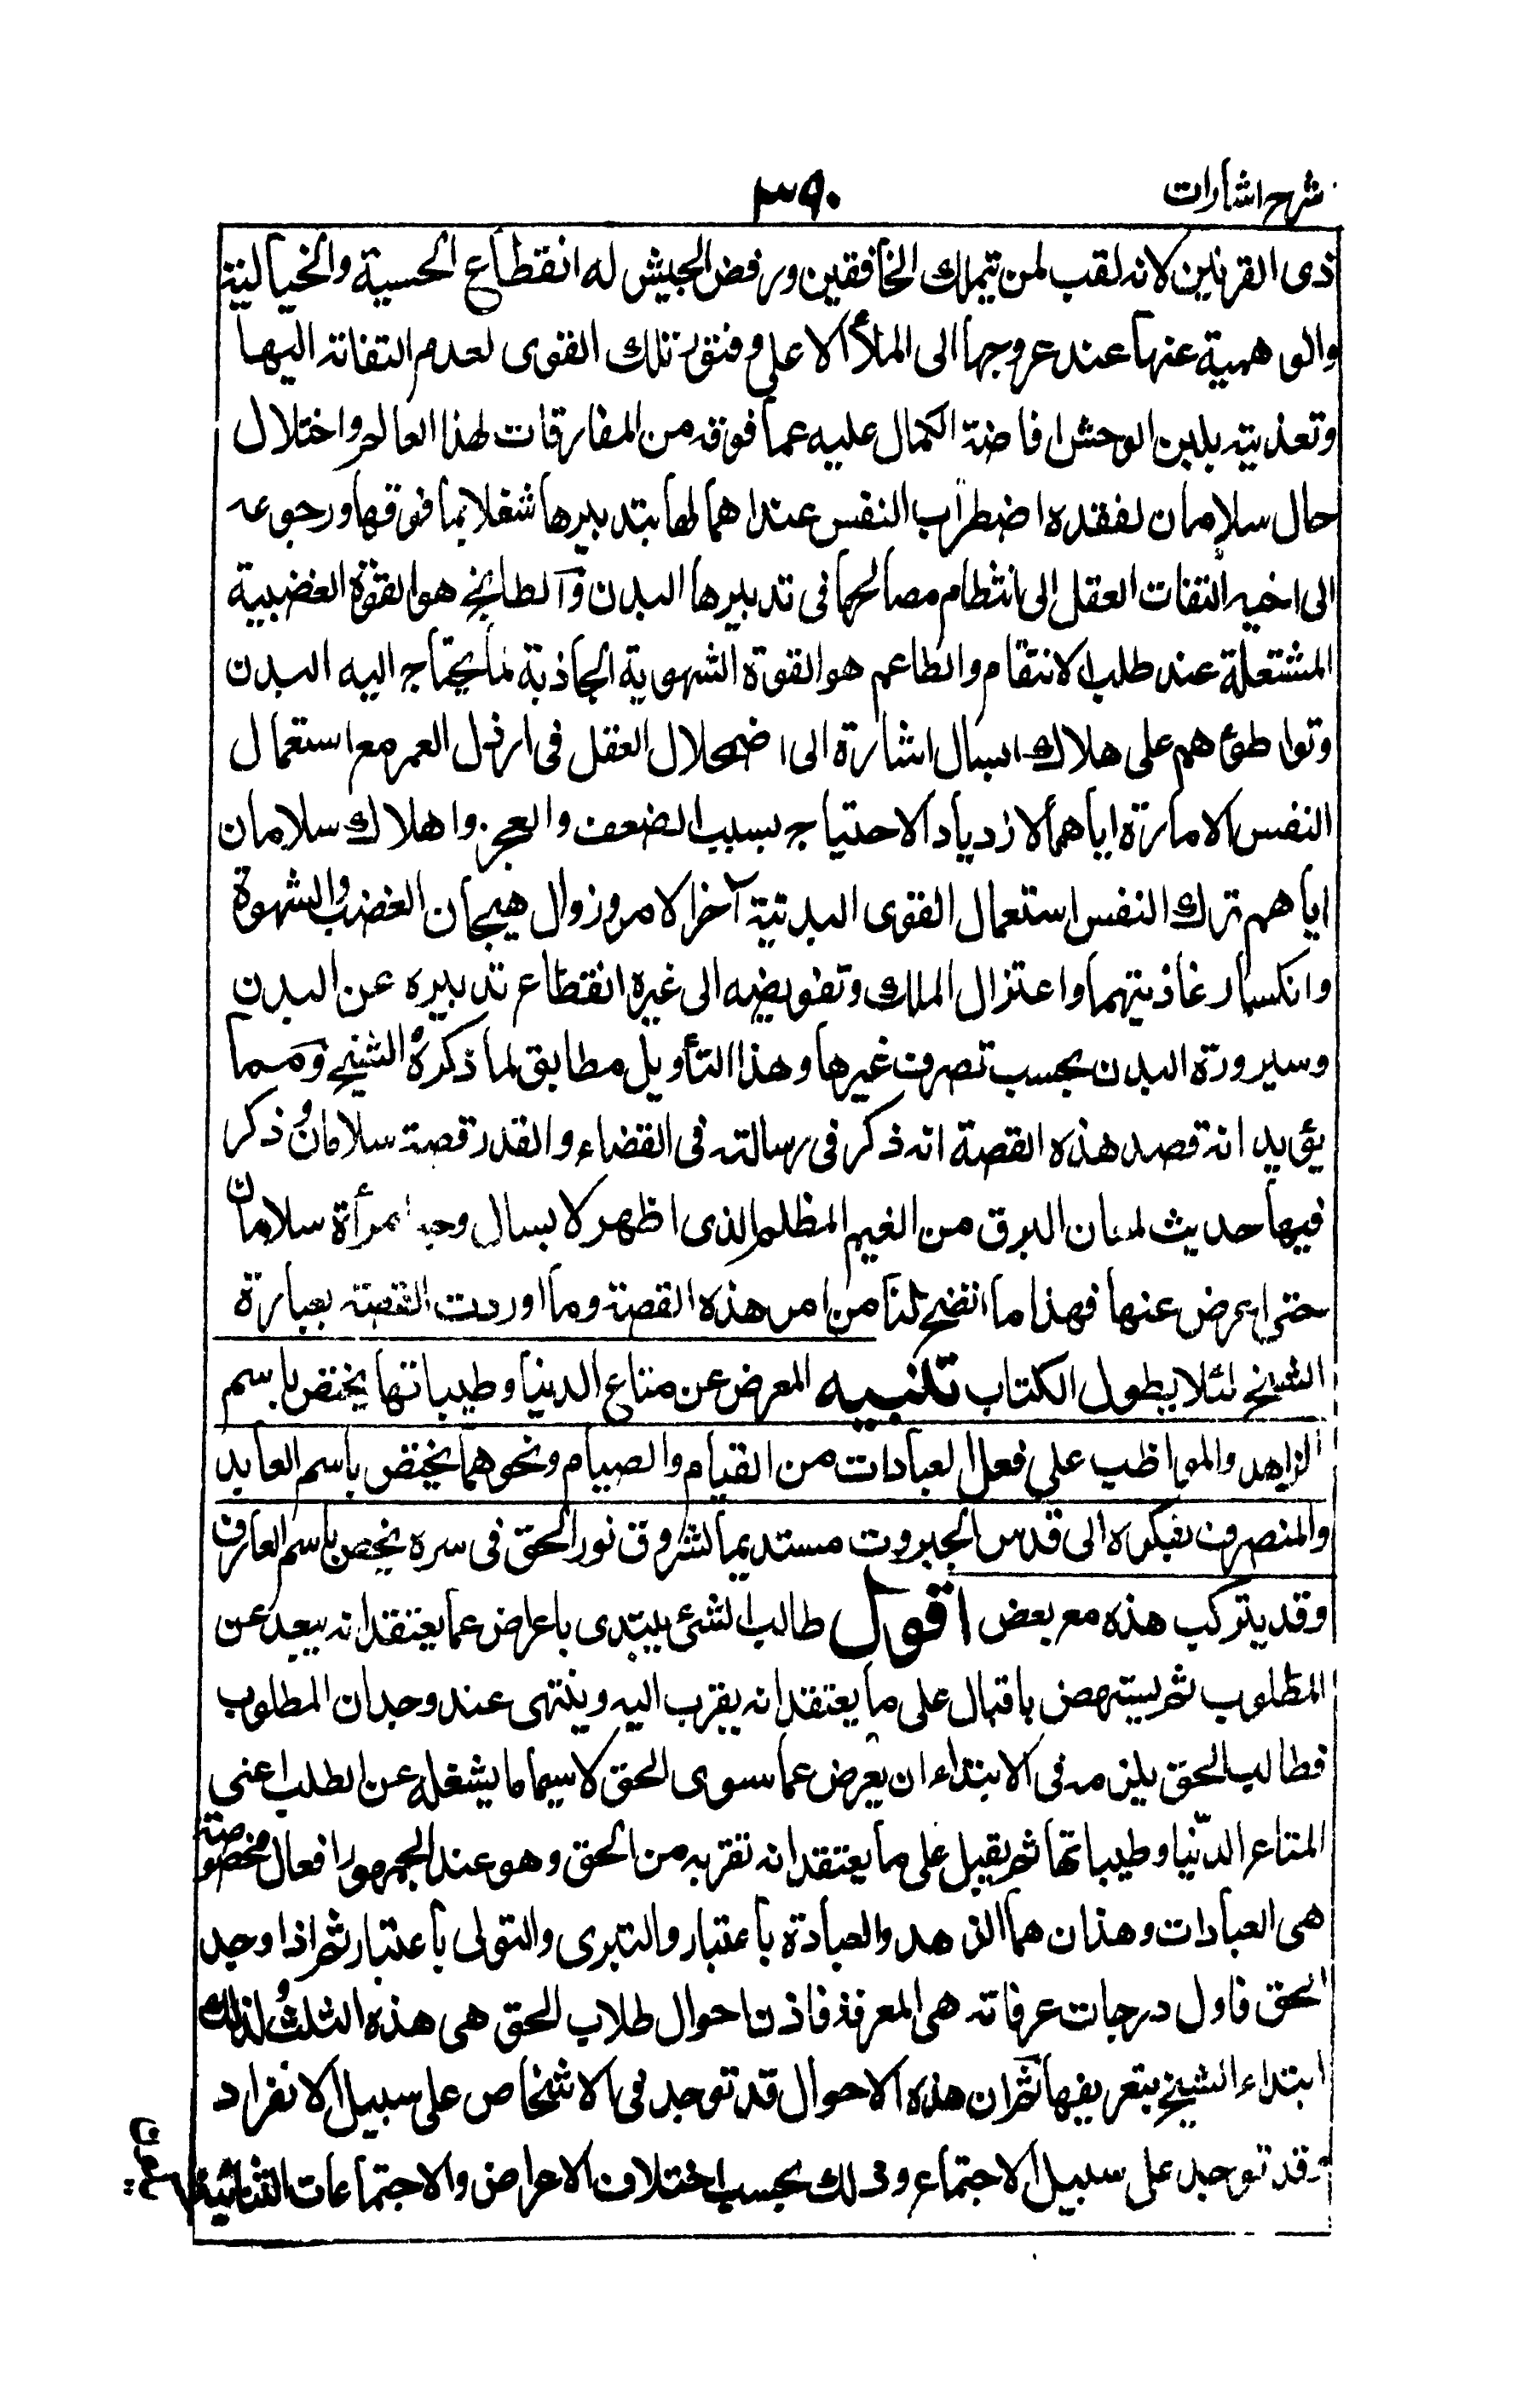 شرح اشارات
٣٩٠
ذى القرنين لانه لقب لمن تيملك الخافقين ورفض الجيش له انقطاع الحسية والخيالية
والوهمية عنها عند عروجها الى الملأ الاعلى وفتور تلك القوى لعدم التفاته اليها
وتغذيته بلبن الوحش افاضة الكمال عليه عما فوقه من المفارقات لهذا العالم واختلال
حال سلامان لفقده اضطراب النفس عند اهمالها بتدبيرها شغلا بما فوقها ورجوعه
الى اخيه التفات العقل الى انتظام مصالحها فى تدبيرها البدن والطابخ هو القوة الغضبية
المشتعلة عند طلب الانتقام والطاعم هو القوة الشهوية الجاذبة لما يحتاج اليه البدن
وتواطؤهم على هلاك ابسال اشارة الى اضمحلال العقل فى ارذل العمر مع استعمال
النفس الامارة اياهما لازدياد الاحتياج بسبب الضعف والعجز واهلاك سلامان
اياهم ترك النفس استعمال القوى البدنية آخر الامر وزوال هيجان الغضب والشهوة
وانكسار غاذيتهما واعتزال الملك وتفويضه الى غيره انقطاع تدبيره عن البدن
وسيرورة البدن بحسب تصرف غيرها وهذا التأويل مطابق لما ذكره الشيخ ومما
يؤيد انه قصد هذه القصة انه ذكر فى رسالته فى القضاء والقدر قصة سلامان وذكر
فيها حديث لمعان البرق من الغيم المظلم الذى اظهر لابسال وجه امرأة سلامان
حتى اعرض عنها فهذا ما اتضح لنا من امر هذه القصة وما اوردت القصة بعبارة
الشيخ لئلا يطول الكتاب تنبيه المعرض عن متاع الدنيا وطيباتها يختص باسم
الزاهد والمواظب على فعل العبادات من القيام والصيام ونحوهما يختص باسم العابد
والمنصرف بفكره الى قدس الجبروت مستديما لشروق نور الحق فى سره يخص باسم العارف
وقد يتركب هذه مع بعض اقول طالب الشئ يبتدى باعراض عما يعتقد انه يبعد عن
المطلوب ثم يستنهض باقبال على ما يعتقد انه يقرب اليه وينتهى عند وجدان المطلوب
فطالب الحق يلزمه فى الابتداء ان يعرض عما سوى الحق لاسيما ما يشغله عن الطلب اعنى
المتاع الدنيا وطيباتها ثم يقبل على ما يعتقد انه تقربه من الحق وهو عند الجمهور افعال مخصوصة
هى العبادات وهذان هما الزهد والعبادة باعتبار والتبرى والتولى باعتبار ثم اذا وجد
الحق فاول درجات عرفانه هى المعرفة فاذن احوال طلاب الحق هى هذه الثلث ولذلك
ابتداء الشيخ بتعريفها ثم ان هذه الاحوال قد توجد فى الاشخاص على سبيل الانفراد
وقد توجد على سبيل الاجتماع وذلك بحسب اختلاف الاعراض والاجتماعات الثنائية